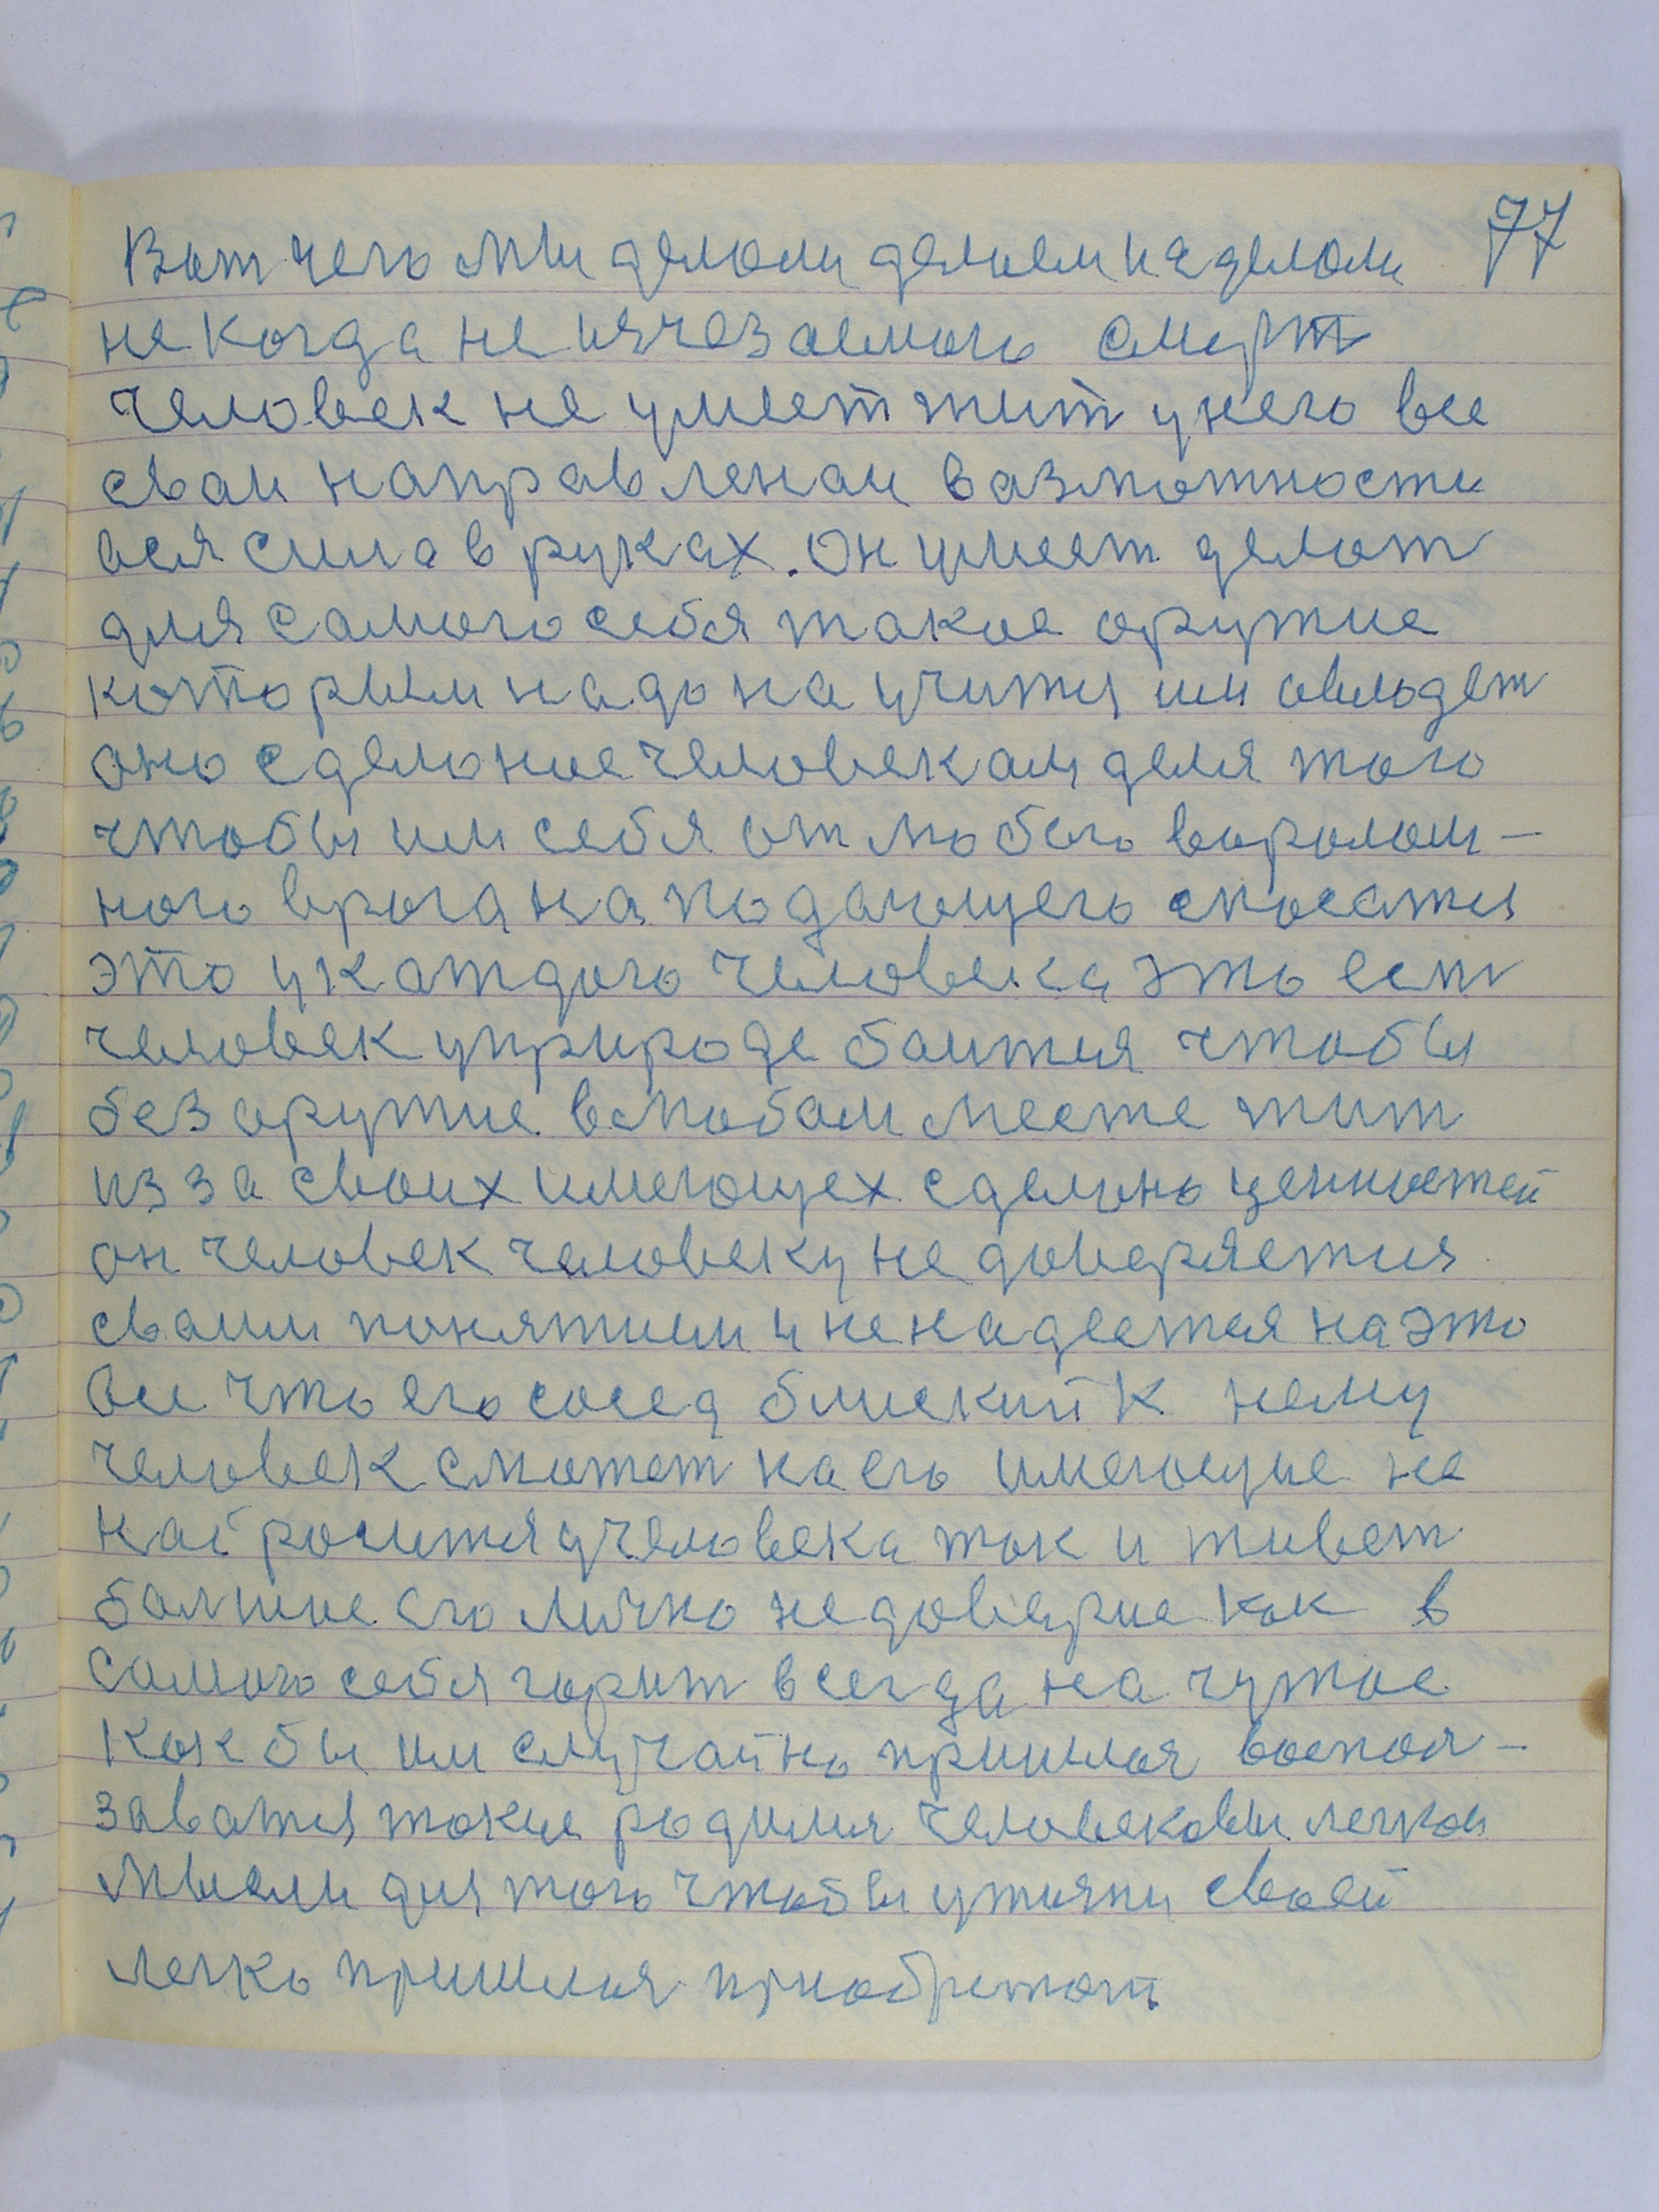 77
Вот чего мы делали делаем и а делали
некогда не изчезаемого смерт
человек не умеет жит у него все
сваи направленаи вазможности
вся сила в руках. Он умеет делат
для самого себя такое оружие
которым надо научится им овладет
оно сделоное человекам деля того
чтобы им себя от любого вороломи-
ного врога нападающего спосатся
это у каждого человека это есть
человек уприроде баится чтобы
без оружие влюбом месте жит
из за своих имеющех сделоно ценностей
он человек человеку не доверяется
сваим понятием и не надеется на это
все что его сосед блиский к нему
человек сможет на его имеющие не
набросится у человека так и живет
болшие его лично недоверие как в
самого себя горит всегда на чужое
как бы им случайно пришлоя воспол-
заватся токие родилия человековы легкои
мысли для того чтобы утияпи своей
легко пришлоя приобретат.